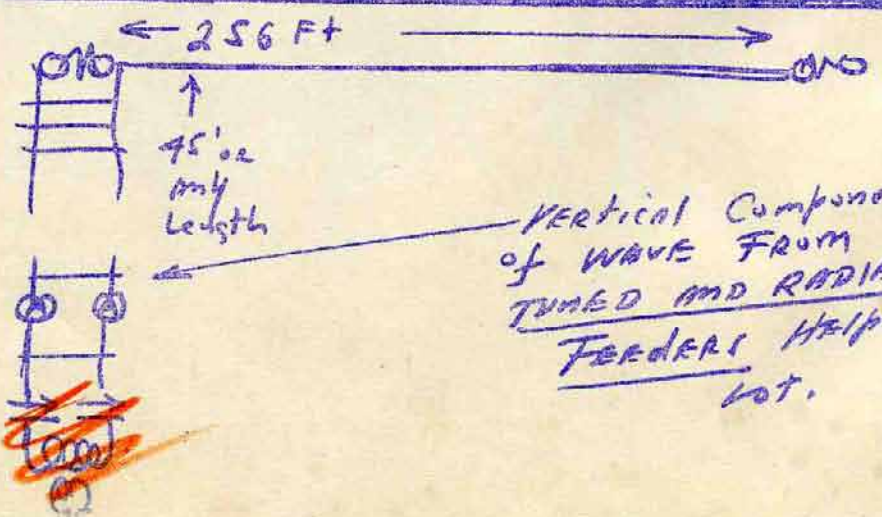 256 Ft
45' or
any
Length
VERTICAL Compone
of WAVE FROM
TUNED AND RADIA
FEEDERS HELP
LOT.